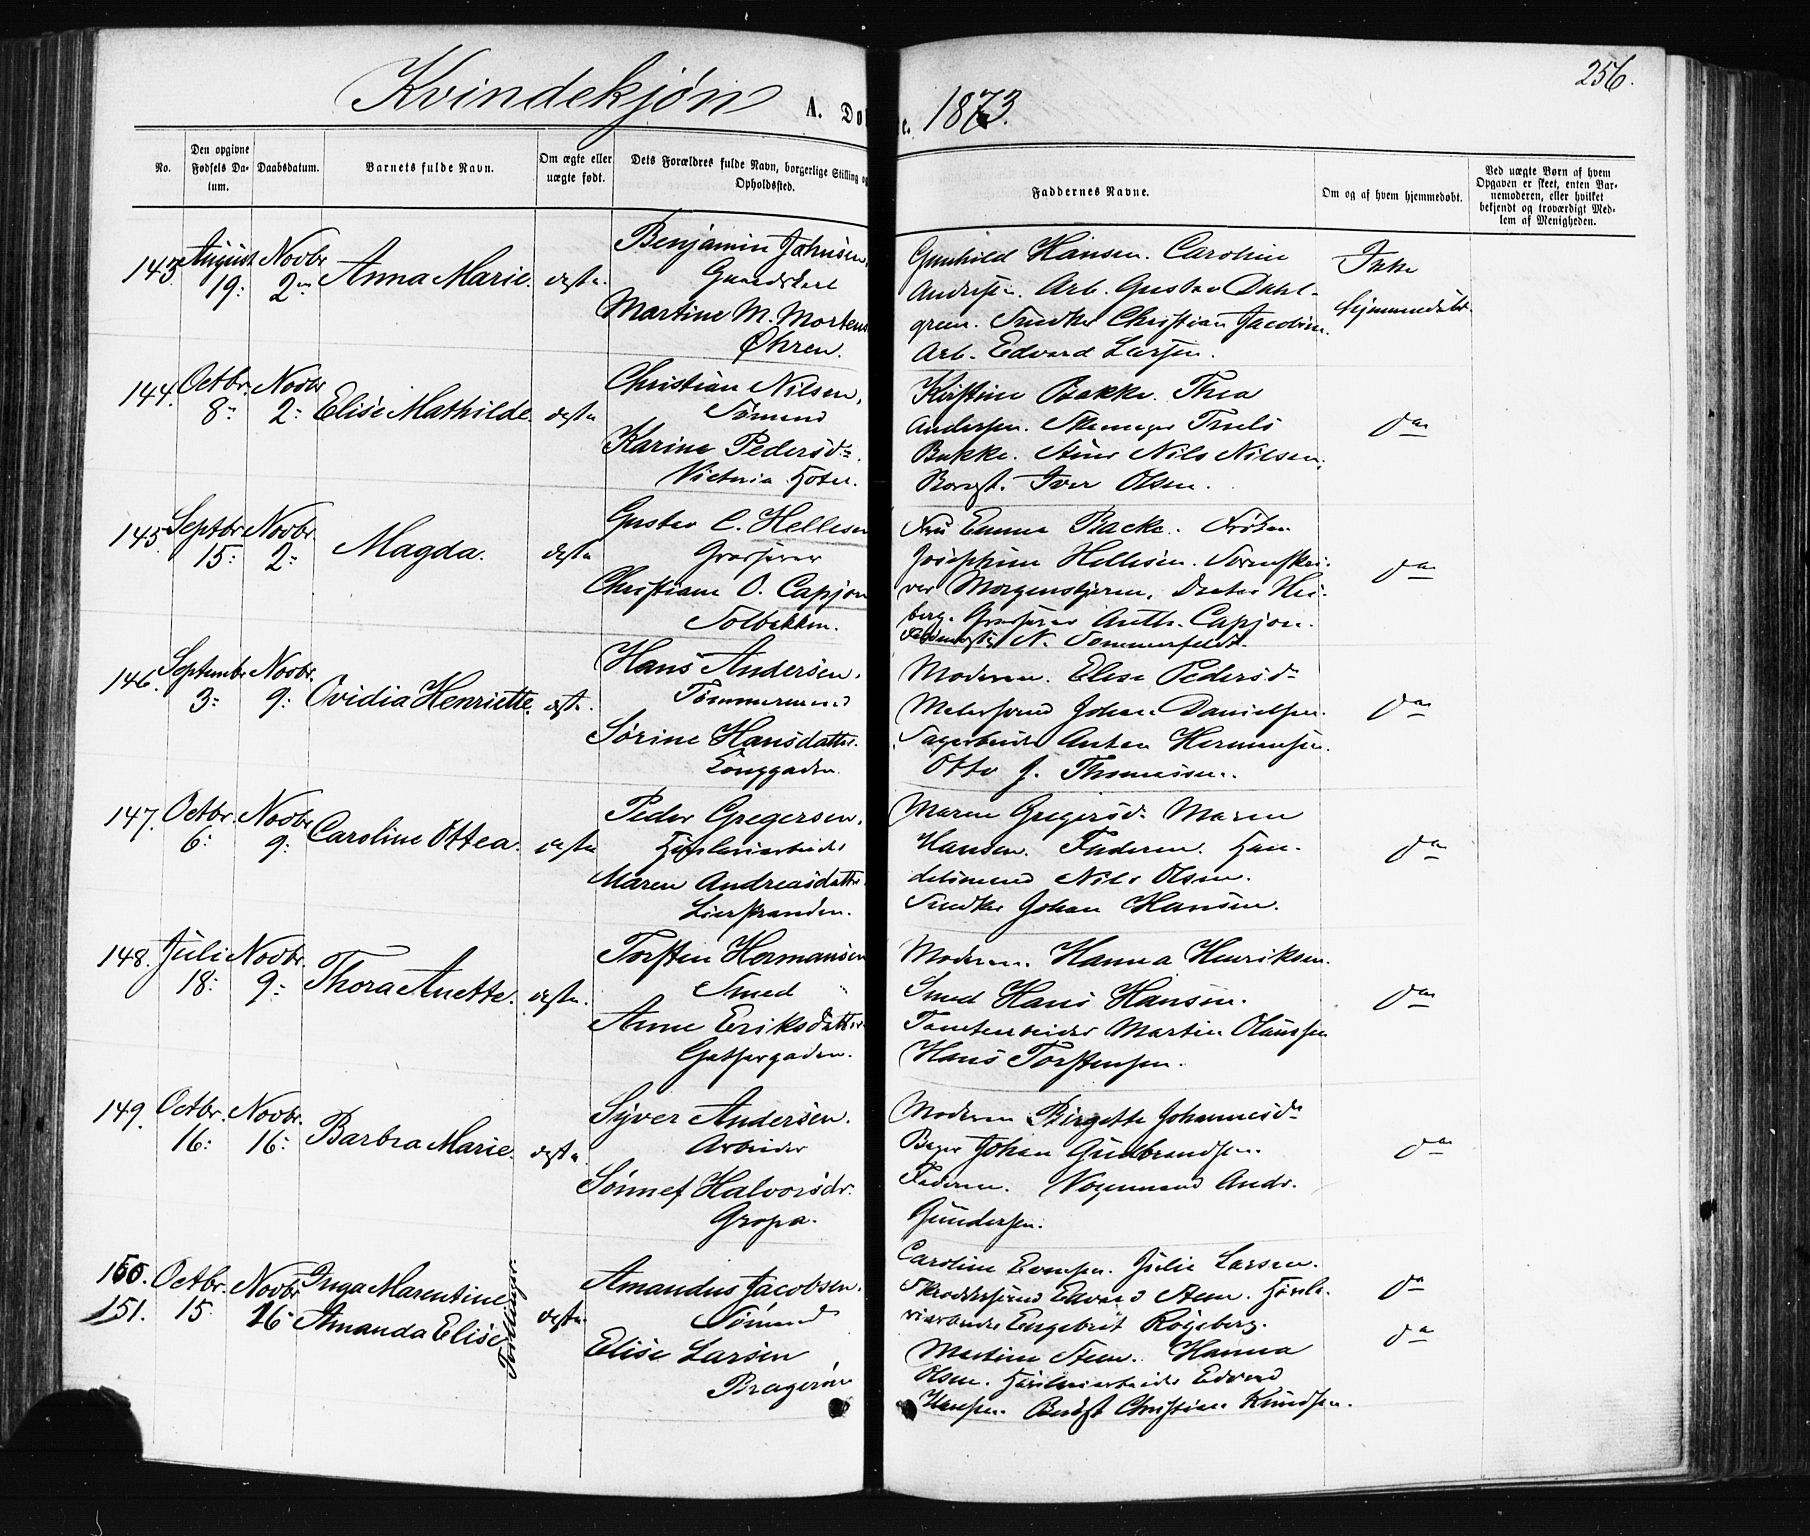 256.
Kvindekjøn A. Do e. 1873.
No. Den opgivne Fødsels Datum. Daabsdatum. Barnets fulde Navn. Om ægte eller uægte født. Dets Forældres fulde Navn, borgerlige Stilling og Opholdssted. Faddernes Navne. Om og af hvem hjemmedøbt. Ved uægte Børn af hvem Opgaven er skeet, enten Barnemoderen, eller hvilket bekjendt og troværdigt Medlem af Menigheden.
143. August 19: Novbr 2en Anna Marie. ægte.
Benjamin Johnsen,
Gaardskarl
Martine M. Mortens
Øhren.
Gunhild Hansen. Caroline
Andersen. Arb. Gustav Dahl-
green. Snedker Christian Jacobsen.
Arb. Edvard Larsen.
Ikke
hjemmedøbt.
144. Octbr. 8: Novbr 2: Elise Mathilde. ægte
Christian Nilsen,
Sømand
Karine Pedersd:
Victoria Hotel.
Kirstine Bakke. Thea
Andersen. Skomager Truls
Bakke. Nils Nilsen.
Iver Olsen.
do
145. Septbr 15: Novbr. 2: Magda. ægte
Gustav C. Hellesen
Grosserer
Christiane O. Capjon
Solbakken.
Fru Emma Backe. Frøken
Josephine Hellesen. Sorenskri-
ver Morgenstjerne, Doctor Hei-
berg. Grosserer Anth. Capjon.
N. Sommerfeldt.
do
146. Septembr 3: Novbr. 9: Ovidia Henriette. ægte.
Hans Andersen,
Tømmermand
Sørine Hansdatter.
Langgaden.
Moderen. Elise Pedersd:
Malersvend Johan Danielsen.
Sagarbeider Anton Hermansen.
Otto J. Thomassen.
do
147. Octbr. 6: Novbr 9: Caroline Ottea. ægte
Peder Gregersen,
Høvleriarbeider
Maren Andreasdatter.
Lierstranden.
Maren Gregersd: Maren
Hansen. Faderen. Han-
delsmand Nils Olsen.
Snedker Johan Hansen.
do
148. Juli 18: Novbr. 9: Thora Anette. ægte.
Torsten Hermansen
Smed
Anne Eriksdatter
Gethergaden.
Moderen. Hanna Henriksen.
Smed Hans Hansen.
Tomtearbeider Martin Olaussen
Hans Torstensen.
do
149. Octbr. 16: Novbr. 16: Barbra Marie. ægte.
Syver Andersen.
Arbeider
Sønnef Halvorsdr.
Gropa.
Moderen Birgette Johannesd:
Bager Johan Gudbrandsen.
Faderen. Vognmand Andr.
Gundersen.
do
150. Octbr. 15. Novbr 16 Inga Marentine
151. Amanda Elise Tvillinger. ægte.
Amandus Jacobsen.
Sømand
Elise Larsen
Bragerøen
Caroline Evensen. Julie Larsen.
Skræddersvend Edvard Steen. Høvle-
riarbeider Engebrit Røgeberg.
Martine Steen. Hanna
Olsen. Høvleriarbeider Edvard
Hansen. Christian Knudsen.
do
do